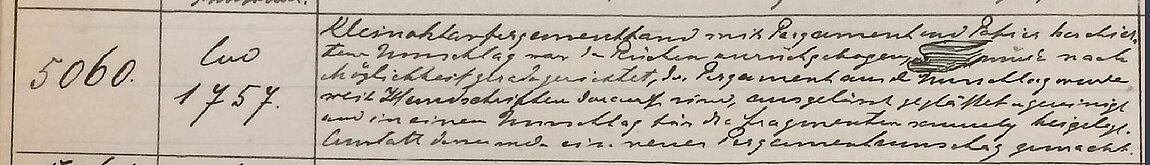 5060.
Cvo
1757.
Kleinoktavpergamentband mit Pergament und Papier beschier-
tem Umschlag war der Rücken zurückgebogen, wurde nach
Möglichkeit geradegerichtet, der Pergament aus d. Umschlag wurde
weil Handschriften darauf sind, ausgelöst geglättet u gereinigt
und in einen Umschlag für die Fragmenten beigelegt.
Anstatt dessen ein neuer Pergamentumschag gemacht.